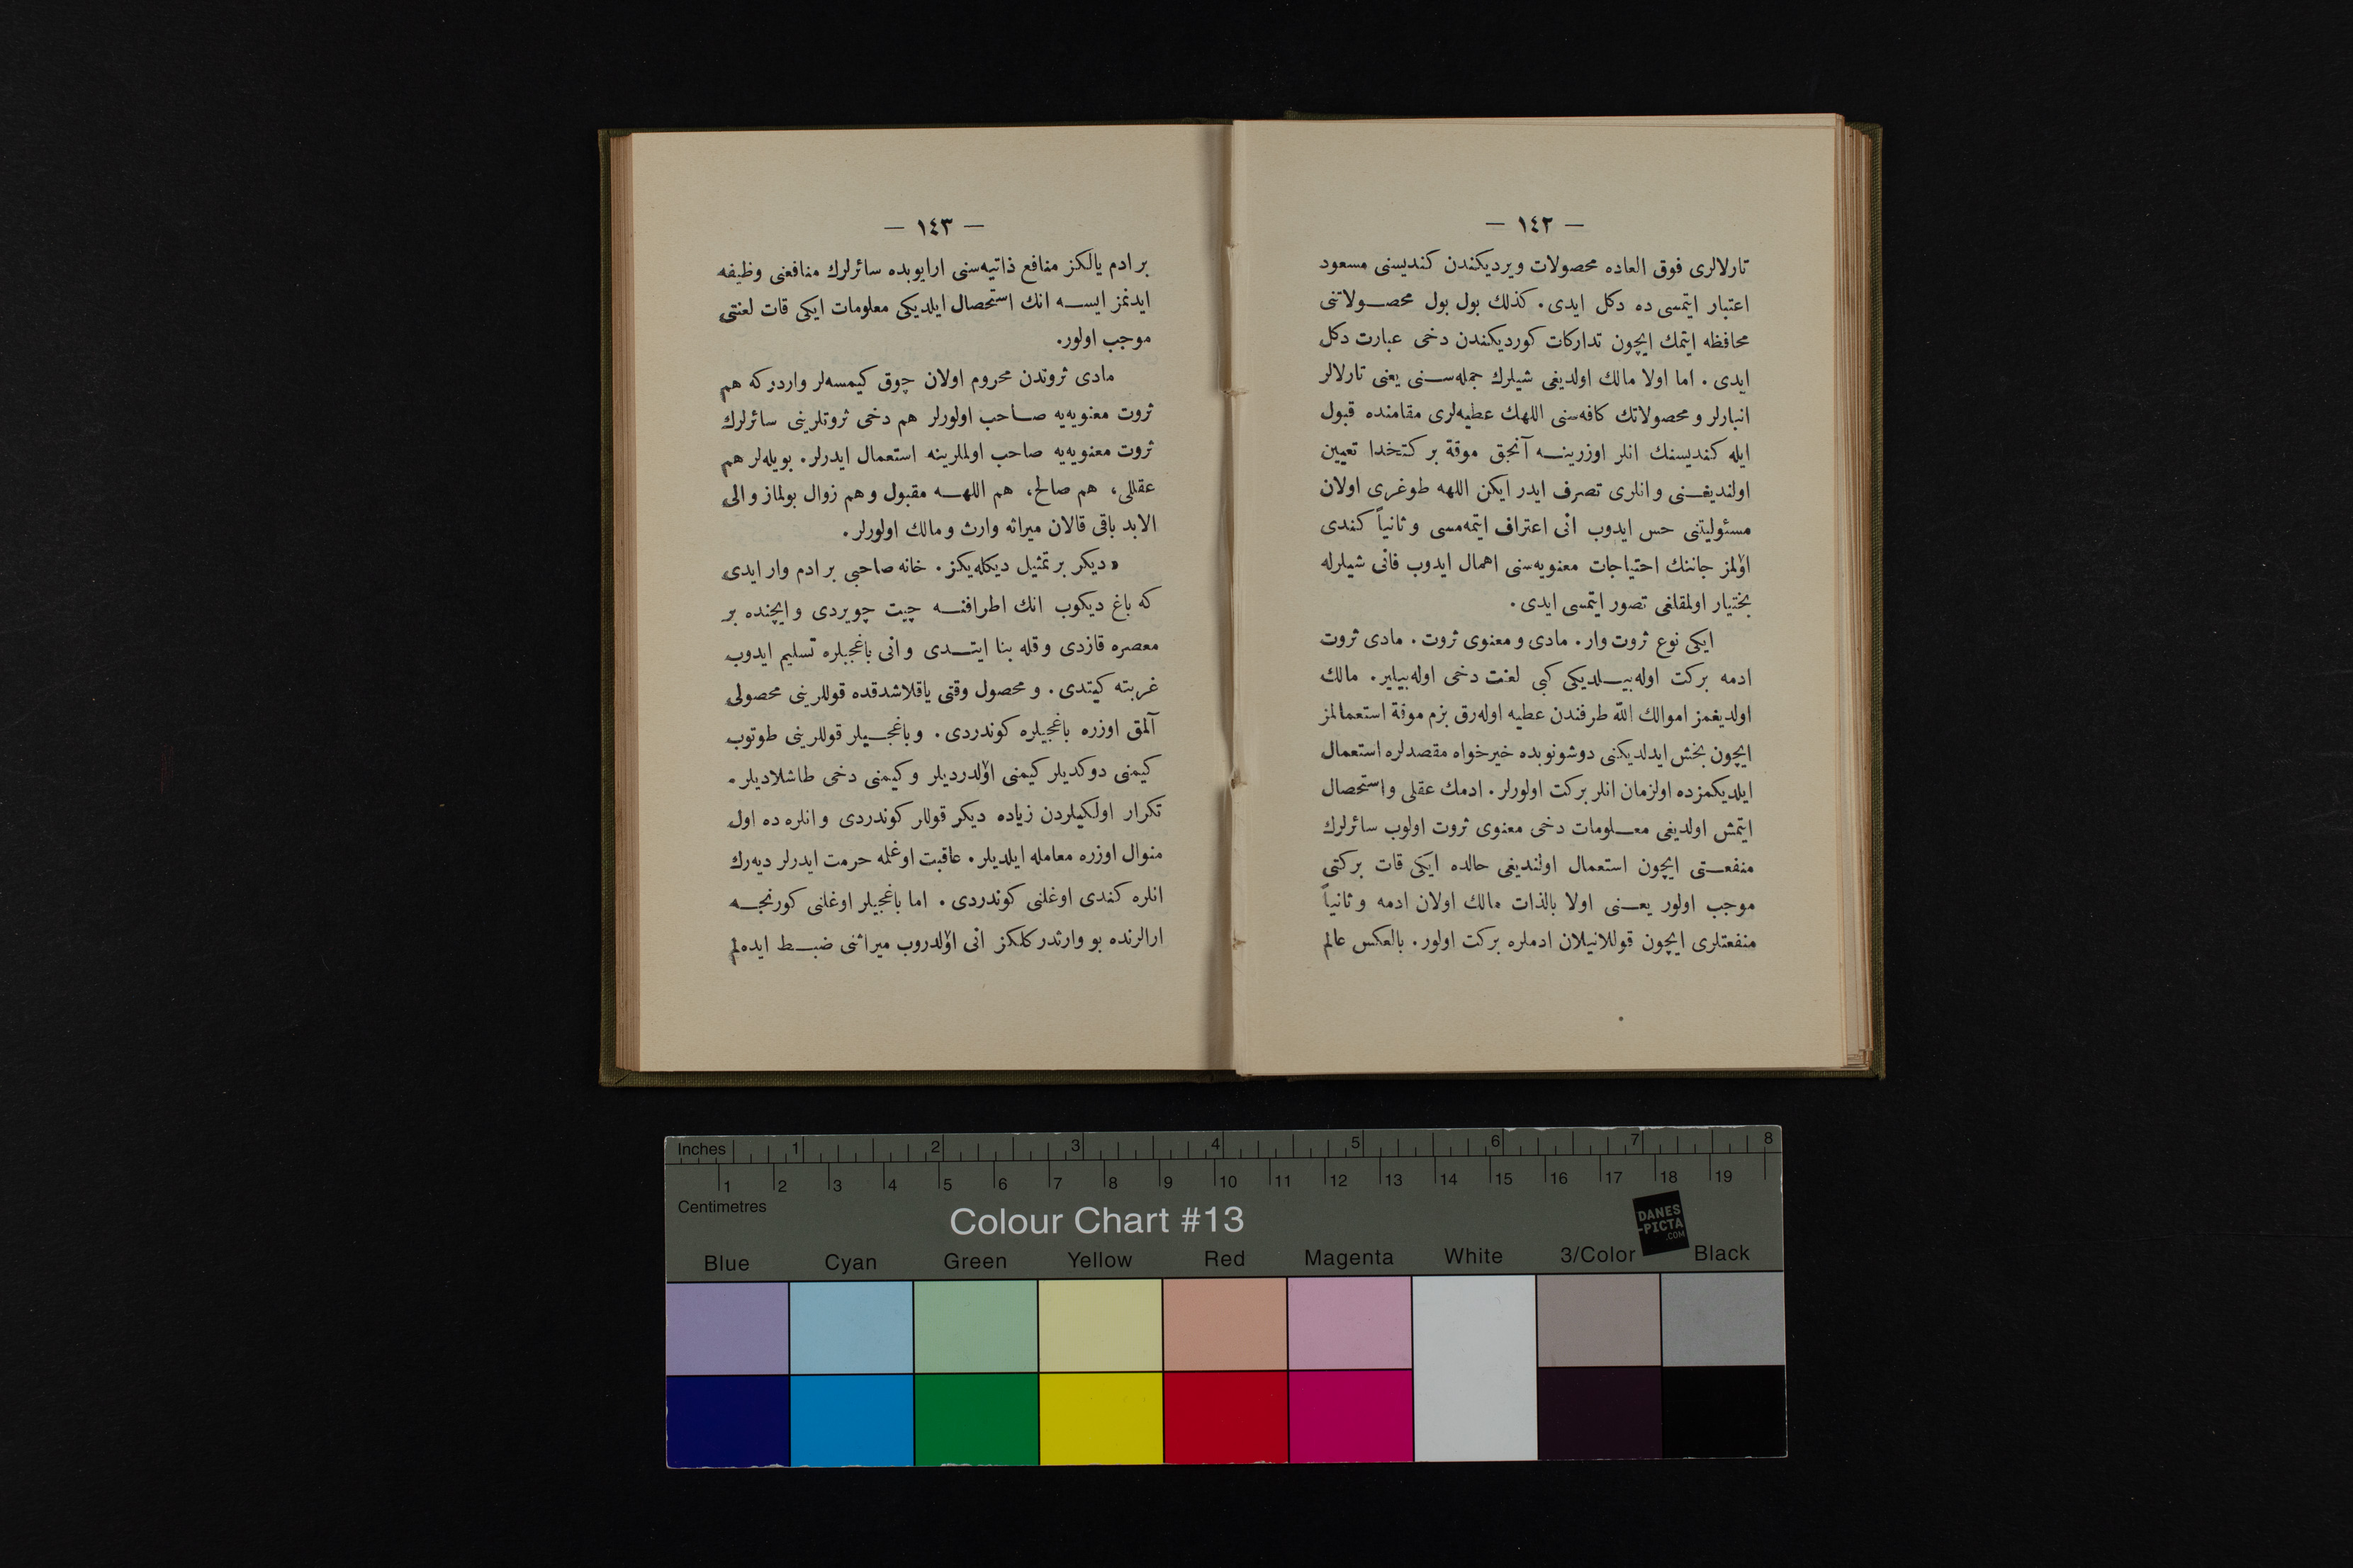 — ١٤٢ —
تارلالری فوق العاده محصولات ویردیكندن كندیسنی مسعود
اعتبار ایتمسی ده دكل ایدی. كذلك بول بول محصولاتنی
محافظه ایتمك ایچون تداركات كوردیكندن دخی عبارت دكل
ایدی. اما اولا مالك اولدیغی شیلرك جمله‌سنی یعنی تارلالر
انبارلر و محصولاتك كافه‌سنی اللهك عطیه‌لری مقامنده قبول
ایله كندیسنك انلر اوزرینه آنجق موقة بر كتخدا تعیین
اولندیغنی و انلری تصرف ایدر ایكن اللهه طوغری اولان
مسئولیتنی حس ایدوب انی اعتراف ایتمه‌مسی و ثانیاً كندی
اؤلمز جاننك احتیاجات معنویه‌سنی اهمال ایدوب فانی شیلرله
بختیار اولمقلغی تصور ایتمسی ایدی.
ایكی نوع ثروت وار. مادی و معنوی ثروت. مادی ثروت
ادمه بركت اوله‌بیلدیكی كبی لعنت دخی اوله‌بیلیر. مالك
اولدیغمز اموالك الله طرفندن عطیه اوله‌رق بزم موقة استعمالمز
ایچون بخش ایدلدیكنی دوشونوبده خیرخواه مقصدلره استعمال
ایلدیكمزده اولزمان انلر بركت اولورلر. ادمك عقلی و استحصال
ایتمش اولدیغی معلومات دخی معنوی ثروت اولوب سائرلرك
منفعتی ایچون استعمال اولندیغی حالده ایكی قات بركتی
موجب اولور یعنی اولا بالذات مالك اولان ادمه و ثانیاً
منفعتلری ایچون قوللانیلان ادملره بركت اولور. بالعكس عالم
— ١٤٣ —
بر ادم یالكز منافع ذاتیه‌سنی ارایوبده سائرلرك منافعنی وظیفه
ایدنمز ایسه انك استحصال ایلدیكی معلومات ایكی قات لعنتی
موجب اولور.
مادی ثروتدن محروم اولان چوق كیمسه‌لر واردر كه هم
ثروت معنویه‌یه صاحب اولورلر هم دخی ثروتلرینی سائرلرك
ثروت معنویه‌یه صاحب اولملرینه استعمال ایدرلر. بویله‌لر هم
عقللی، هم صالح، هم اللهه مقبول و هم زوال بولماز و الی
الابد باقی قالان میراثه وارث و مالك اولورلر.
«دیكر بر تمثیل دیكله‌یكز. خانه صاحبی بر ادم وار ایدی
كه باغ دیكوب انك اطرافنه چیت چویردی و ایچنده بر
معصره قازدی و قله بنا ایتدی و انی باغجیلره تسلیم ایدوب
غربته كیتدی. و محصول وقتی یاقلاشدقده قوللرینی محصولی
آلمق اوزره باغجیلره كوندردی. و باغجیلر قوللرینی طوتوب
كیمنی دوكدیلر كیمنی اؤلدردیلر و كیمنی دخی طاشلادیلر.
تكرار اولكیلردن زیاده دیكر قوللر كوندردی و انلره ده اول
منوال اوزره معامله ایلدیلر. عاقبت اوغلمه حرمت ایدرلر دیه‌رك
انلره كندی اوغلنی كوندردی. اما باغجیلر اوغلنی كورنجه
ارالرنده بو وارثدر كلكز انی اؤلدروب میراثنی ضبط ایده‌لم
Inches 1 2 3 4 5 6 7 8
1 2 3 4 5 6 7 8 9 10 11 12 13 14 15 16 17 18 19
Centimetres
Colour Chart #13
DANES
-PICTA
.COM
Blue Cyan Green Yellow Red Magenta White 3/Color Black